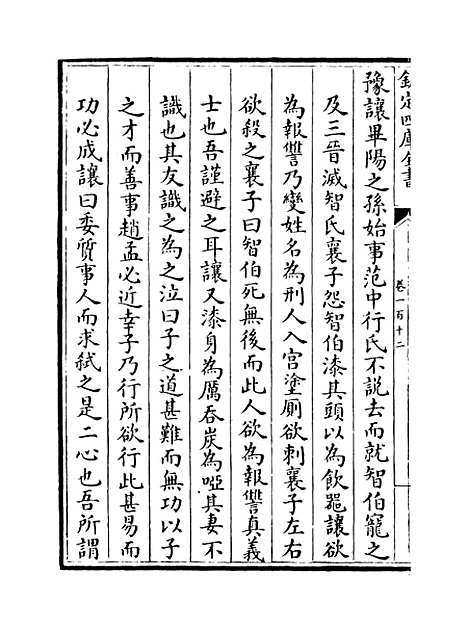 欽定四庫全書
卷一百十二
豫讓畢陽之孫始事范中行氏不說去而就智伯寵之
及三晉滅智氏襄子怨智伯漆其頭以為飲器讓欲
為報讐乃變姓名為刑人入宮塗厠欲刺襄子左右
欲殺之襄子曰智伯死無後而此人欲為報讐真義
士也吾謹避之耳讓又漆身為厲吞炭為啞其妻不
識也其友識之為之泣曰子之道甚難而無功以子
之才而善事趙孟必近幸子乃行所欲行此甚易而
功必成讓曰委質事人而求弑之是二心也吾所謂